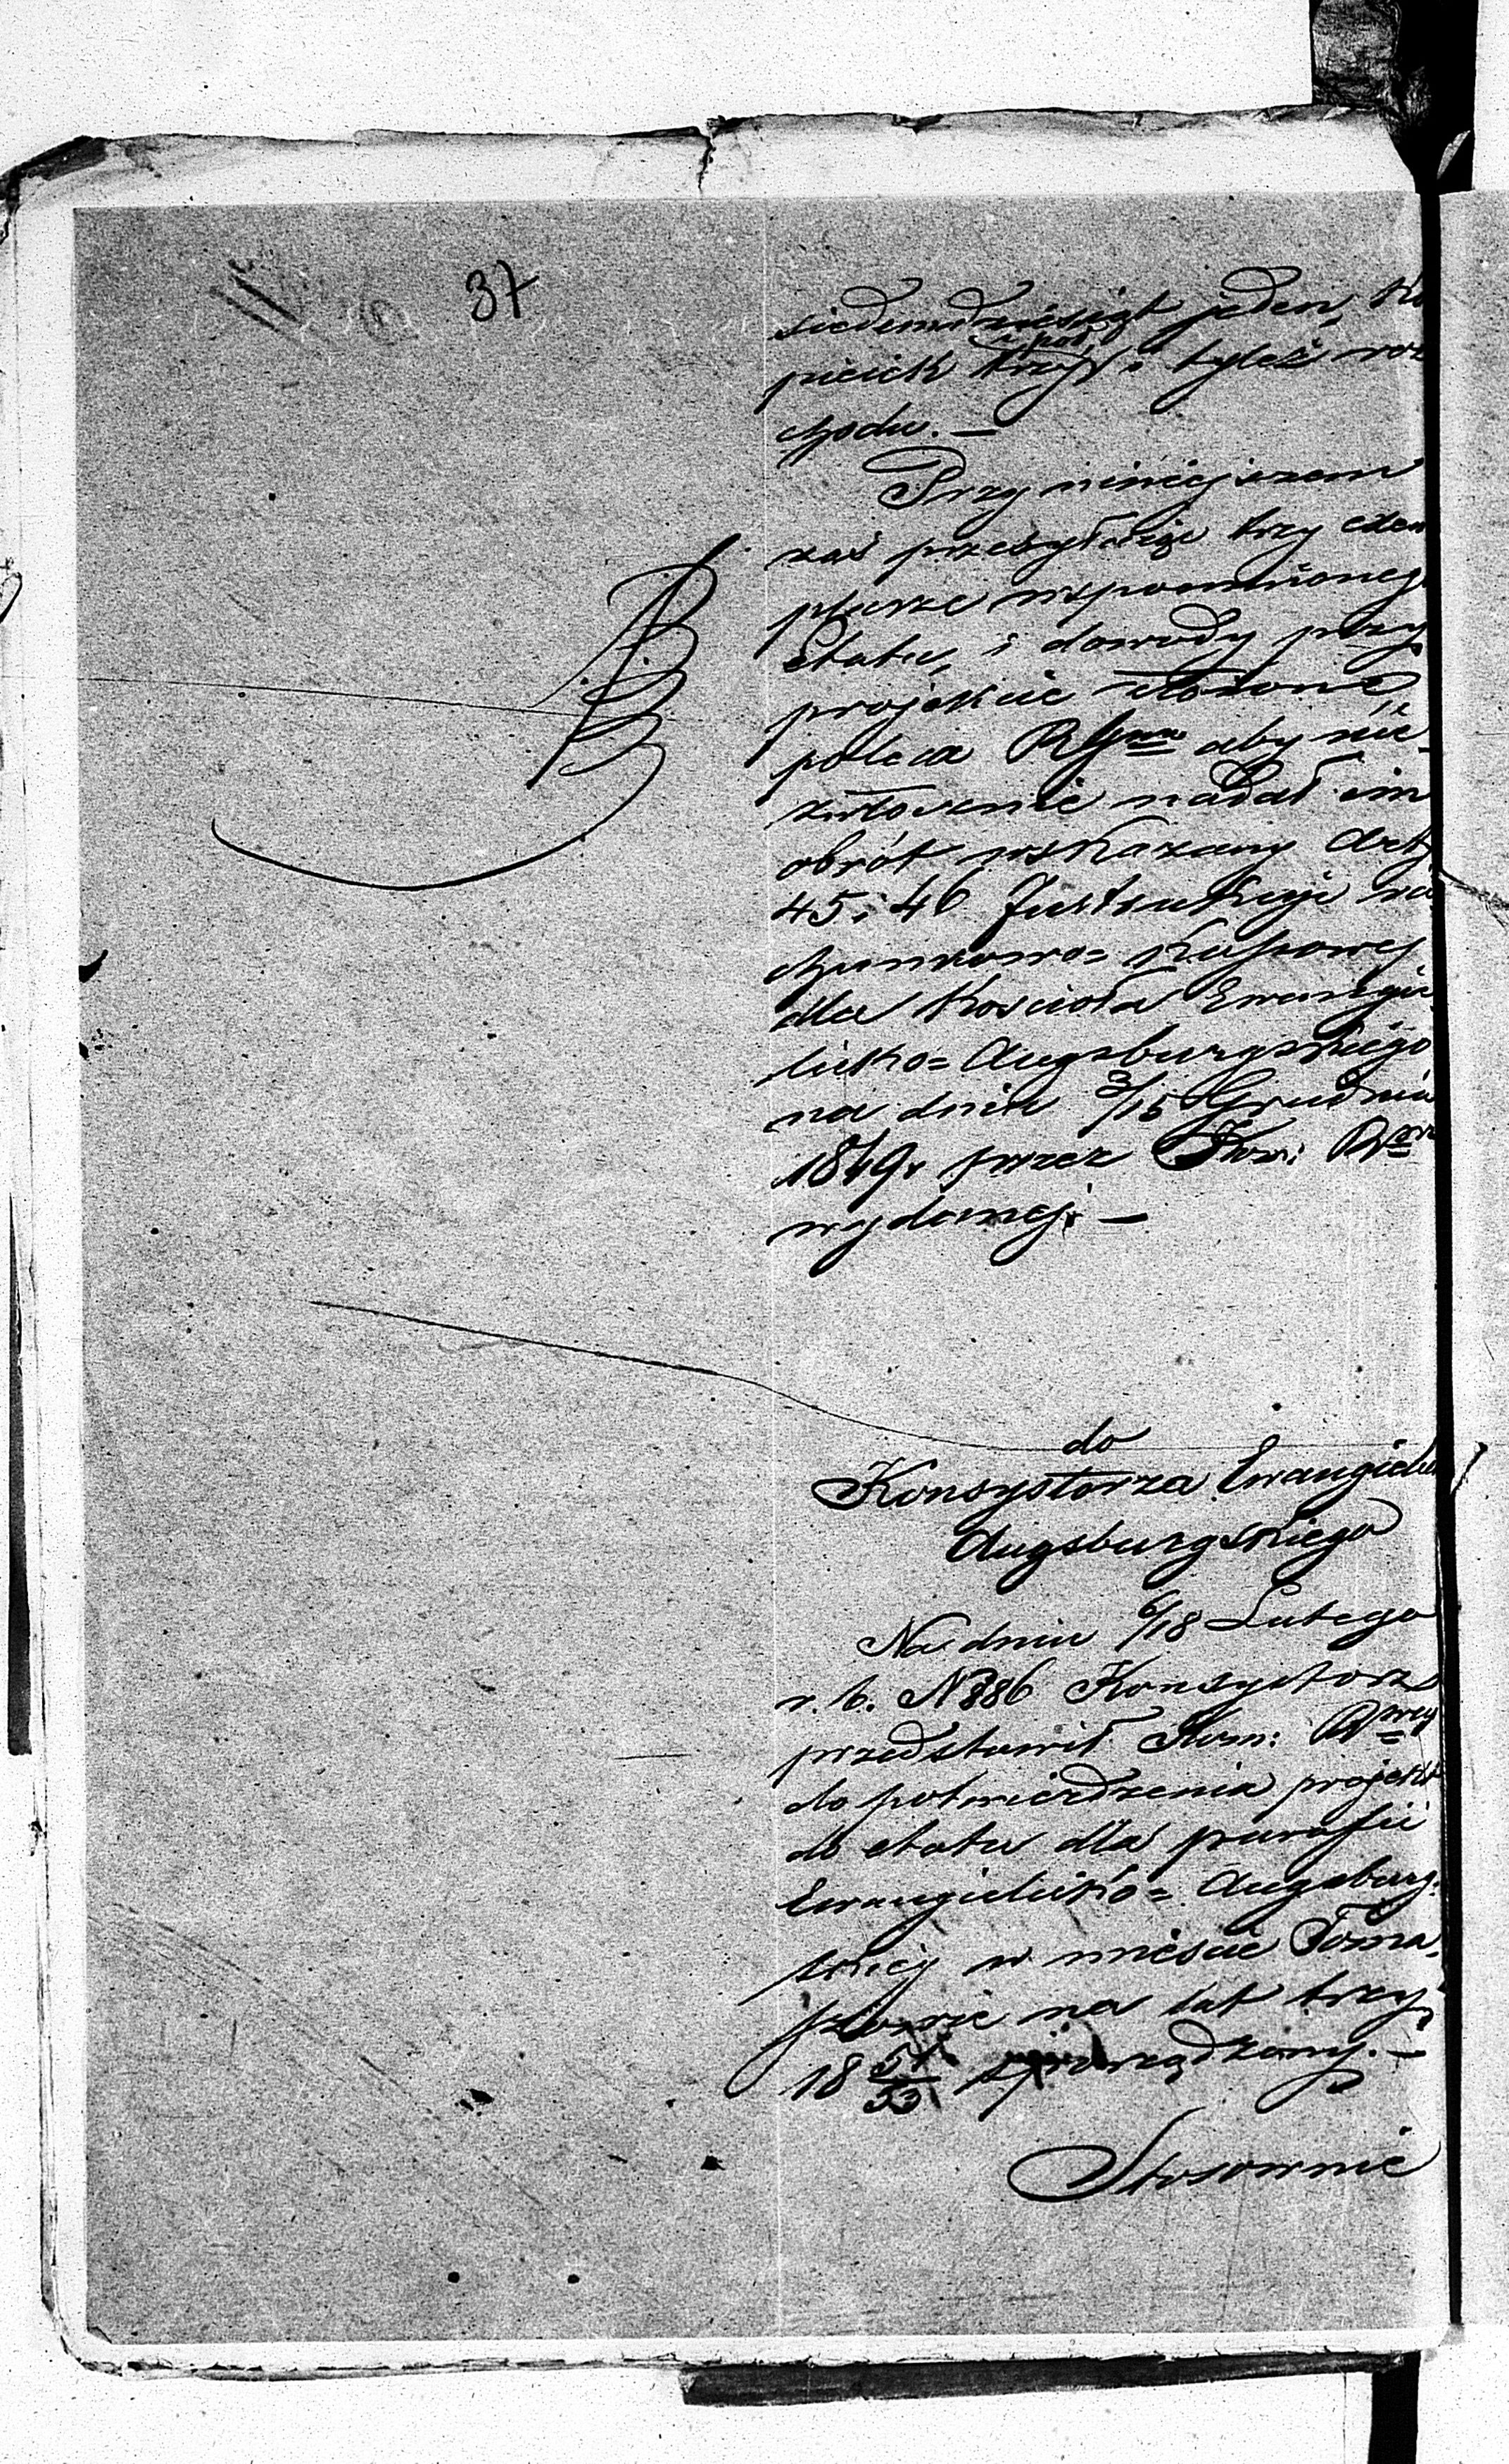 37
siedemdziesiąt jeden, ko
piejek trzy i pół, i tyleż roz
chodu. —
Przy niniejszem
zaś przesyłając trzy exem
plarze wspomnionego
Etatu, i dowody przy
projekcie złożone,
poleca R Gmu aby nie
zwłocznie nadał im
obrót wskazany Art.
45 i 46 Instrukcyi ra
chunkowo= Kassowej
dla Kościoła Ewangie
licko= Augsburgskiego
na dniu 3/15 Grudnia
1849 r. przez Kom:
wydanej. —
do
Konsystorza Ewangielic
Augsburgskiego
Na dniu 6/18 Lutego
r. b. N 886 Konsystorz
przedstawił Kom:
do potwierdzenia projekt
do etatu dla parafii
Ewangielicko= Augsburg
skiej w mieście Toma
szowie na lat trzy
18 51/53 sporządzony. —
Stosownie